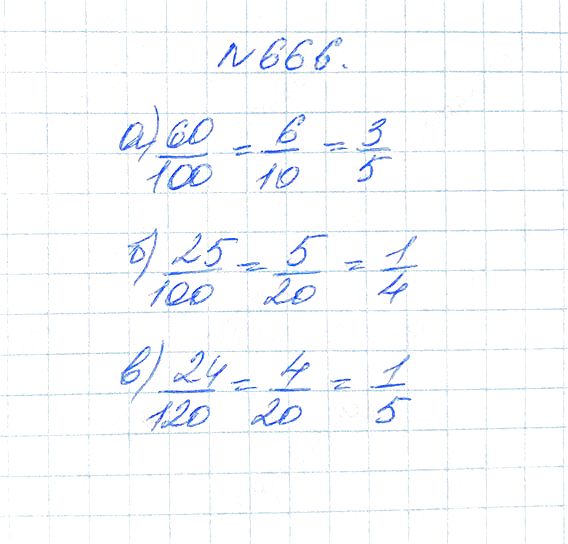 № 666.
а) 60/100 = 6/10 = 3/5
б) 25/100 = 5/20 = 1/4
в) 24/120 = 4/20 = 1/5